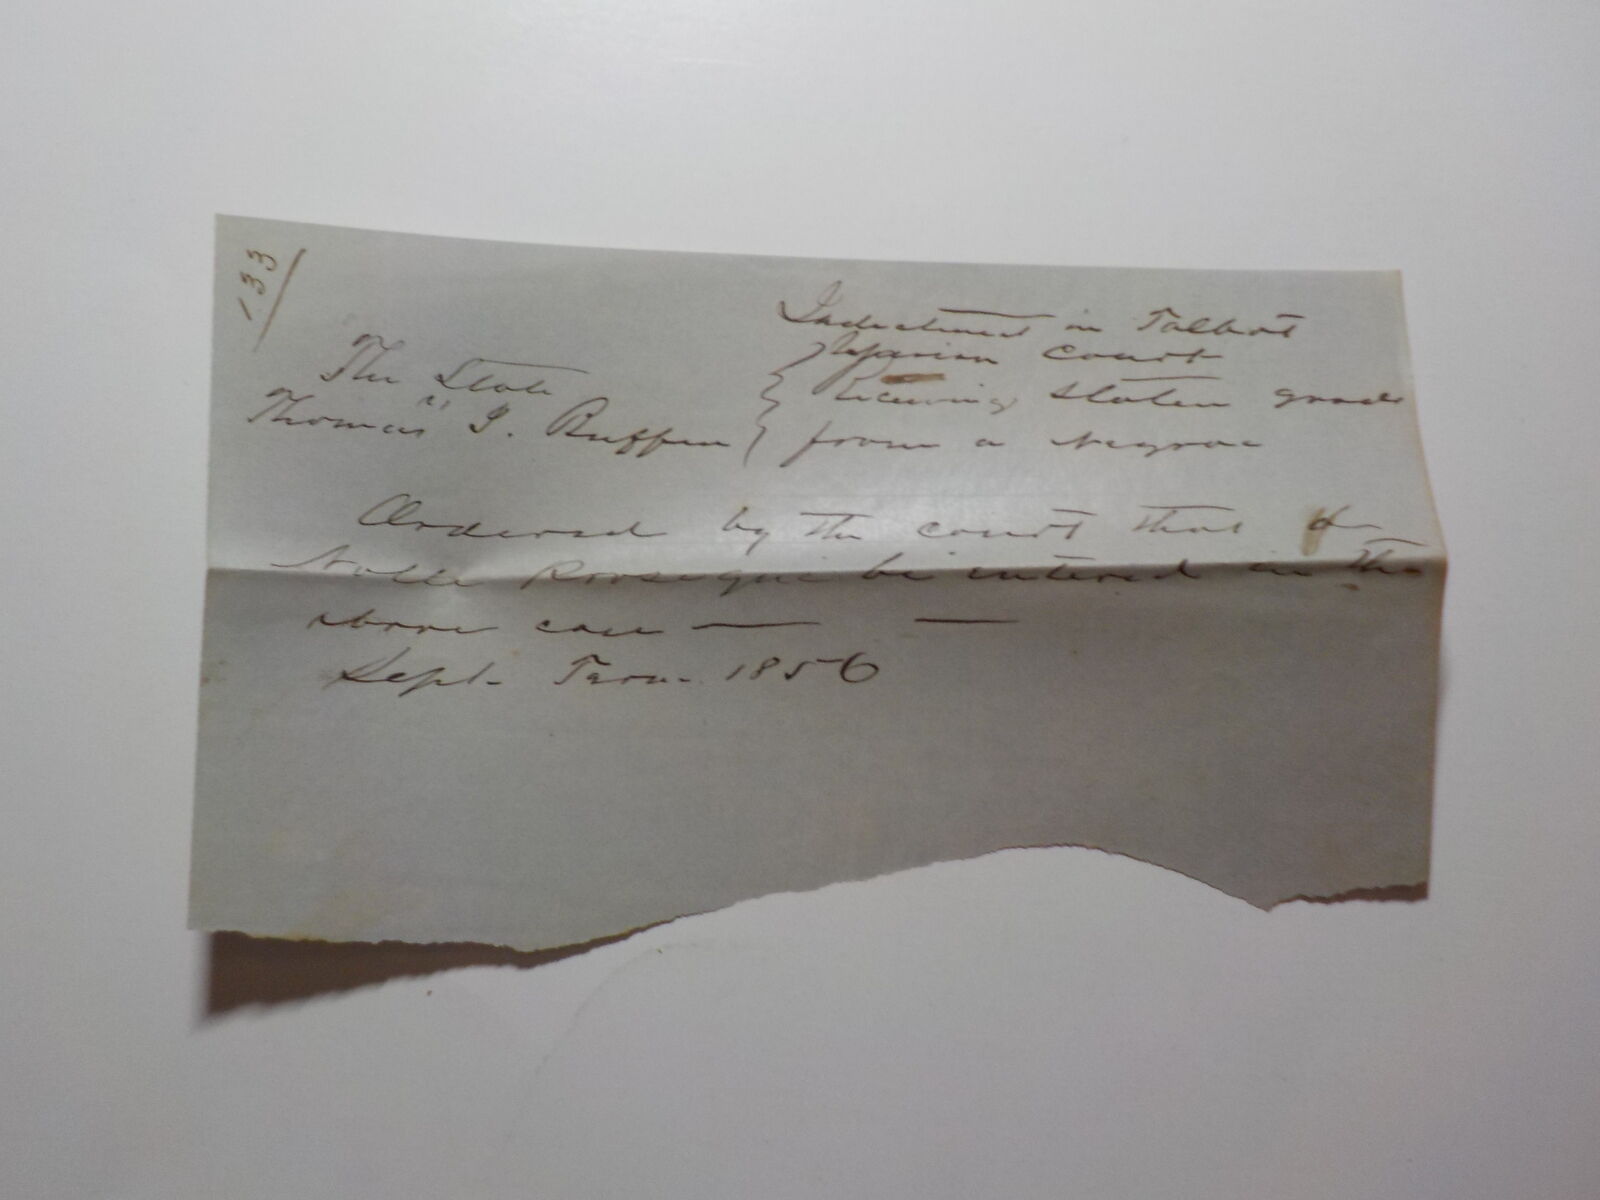 133
Indictment in Talbot
Superior Court
The State
Receiving stolen goods
vs
Thomas J. Ruffin
from a negroe
Ordered by the court that a
Nolle Prosequi be entered in the
above case — —
Sept. Term. 1856